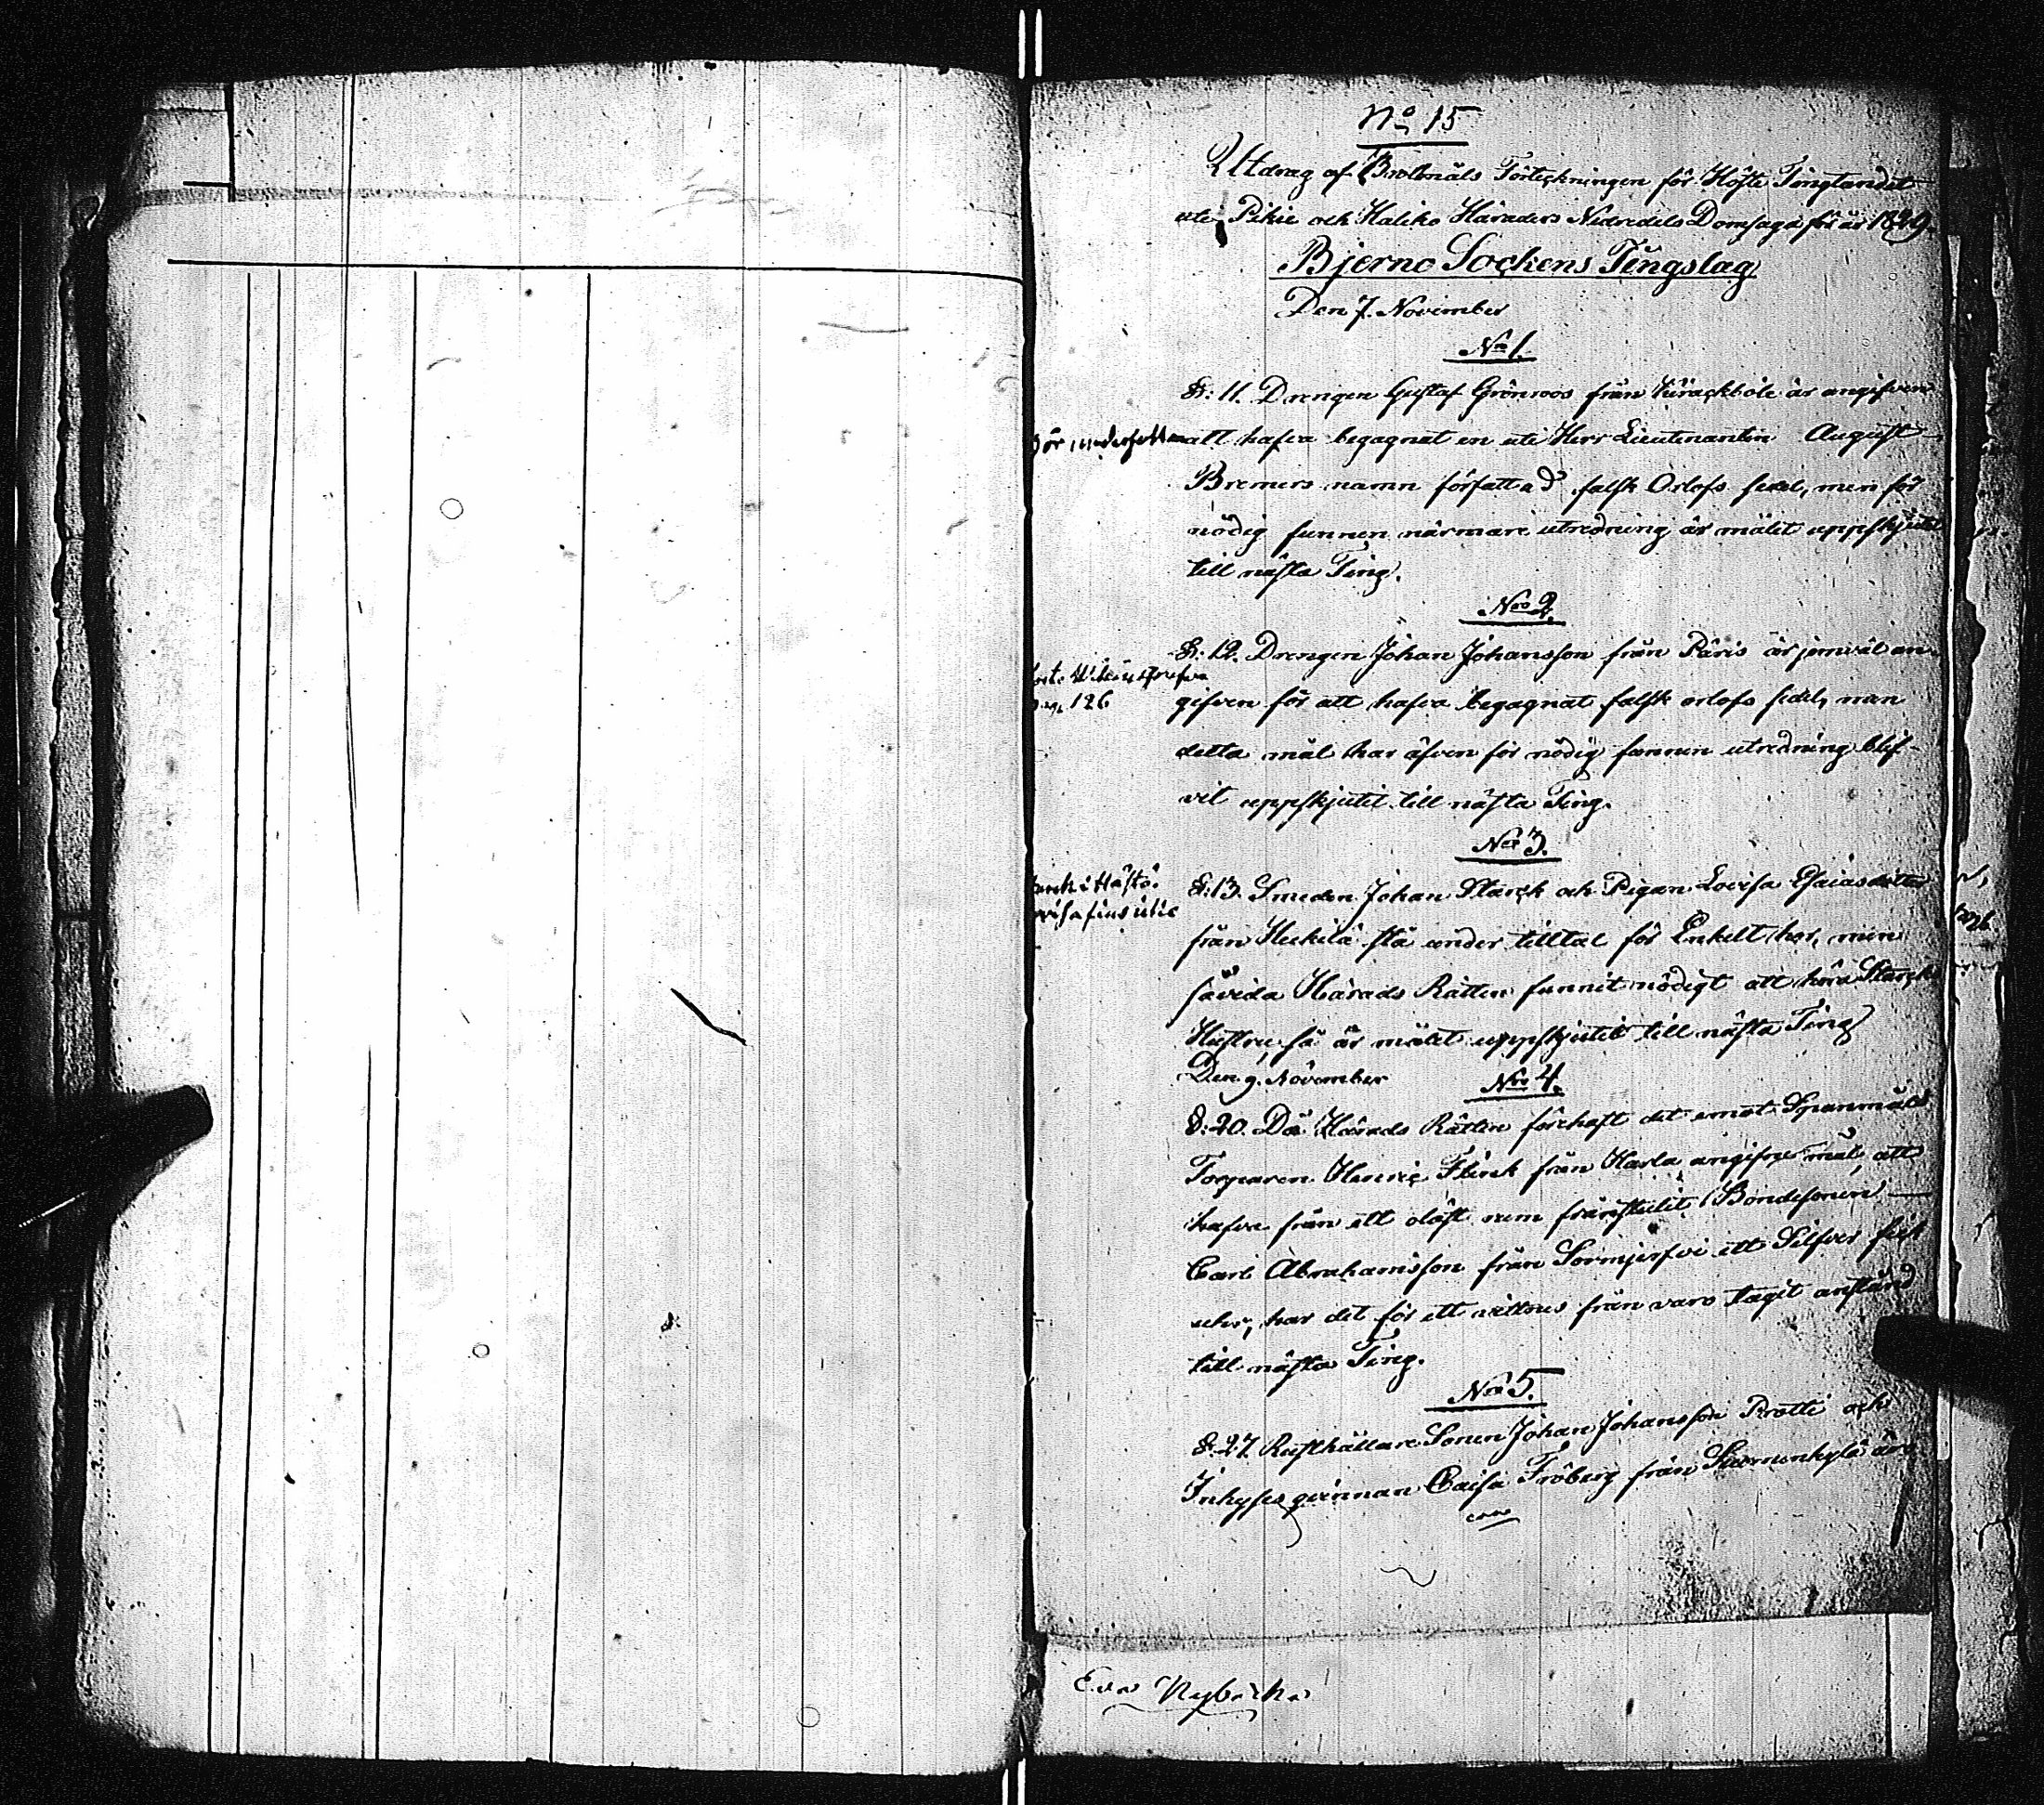 No 15
Utdrag af Brottmåls Förteckningen för Höste Tingtandet
uti Pikie och Haliko Häraders Nedredels Domsaga för år 1849.
Bjerno Sockens Tingslag
Den 7. November
No 1.
§: 11. Drengen Gustaf Grönroos från är angifven
att hafva begagnat en uti Herr Lieutenanten August
Bremers namn författad falsk Orlofs sedel, men för
nödig funnen närmare utredning är målet uppskjutit
till nästa Ting.
No 2.
§: 12. Drengen Johan Johansson från Påris är jemväl an-
126
gifven för att hafva begagnat falsk orlofs sedel, men
detta mål har äfven för nödig funnen utredning blif-
vit uppskjutit till nästa Ting.
No 3.
§: 13. Smeden Johan Starck och Pigan Lovisa Esaiasdotter
från Heikilä stå under tilltal för Enkelt hor, men
såvida Härads Rätten funnit nödigt att höra Starcks
Hustru, så är målet uppskjutit till nästa Ting
Den 9. November
No 4.
§: 20. Då Härads Rätten förehaft det emot Spanmåls
Torparen Henric Flink från Karla angifne mål, att
hafva från ett olåst rum frånstulit Bondesonen
Carl Abrahamsson från Sormjerfvi ett Silfver fick
uhr, har det för ett vittnes från varo tagit anstånd
till nästa Ting.
No 5.
§: 27. Rusthållare Sonen Johan Johansson Protti och
Inhyses qvinnan Caisa Fröberg från äro
Eva Nybacka